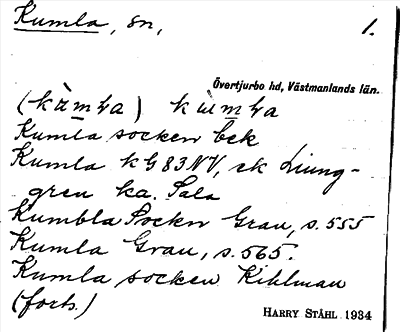 Kumla, sn, 1.
Övertjurbo hd, Västmanlands län.
(kùmḷa) kùmḷa
Kumla socken bek
Kumla KG 83 NV, ek Ljung-
gren ka. Sala
Kumbla Sockn Grau, s. 555
Kumla Grau, s. 565.
Kumla socken Kihlman
(forts.)
HARRY STÅHL 1934